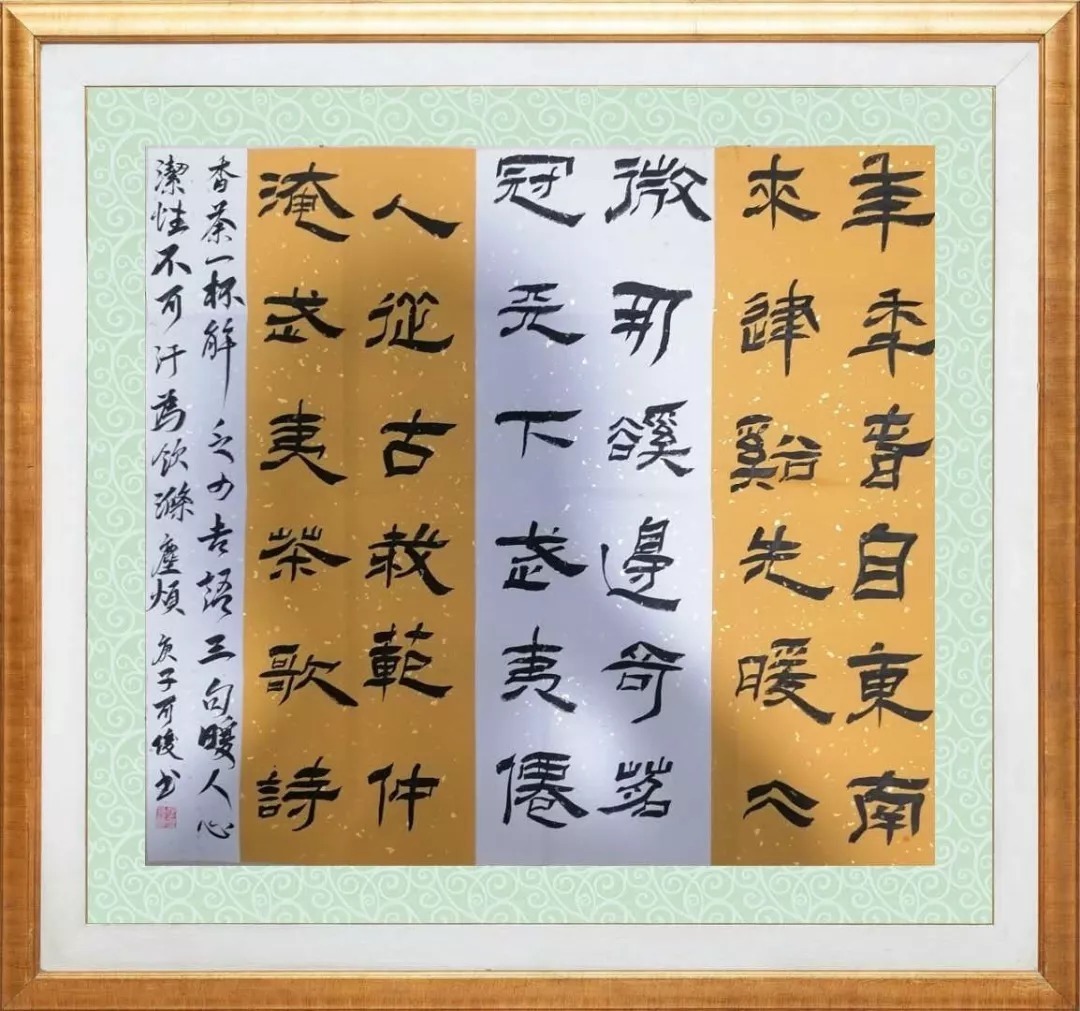 年年春自東南
來建谿先暖仌
微开谿邊奇茗
冠天下武夷僊
人從古栽範仲
淹武夷茶歌詩
香茶一杯解乏力吉語三句暖人心
潔性不可汙為飲滌塵煩 庚子可俊书